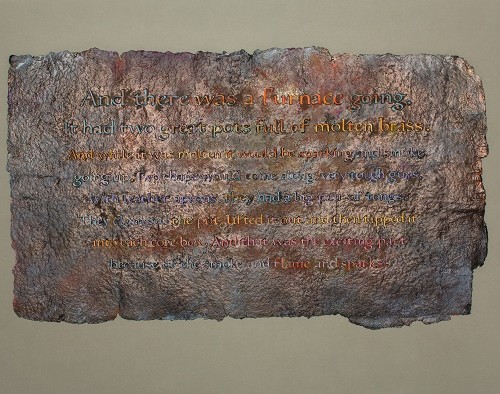 And there was a furnace going.
It had two great pots full of molten brass.
And while it was molten it would be sparking and smoke
going up. Two chaps would come along, very tough guys,
with leather aprons. They had a big pair of tongs,
they clamped the pot, lifted it out and then tipped it
into each core box. And that was the exciting part,
because of the smoke and flame and sparks.